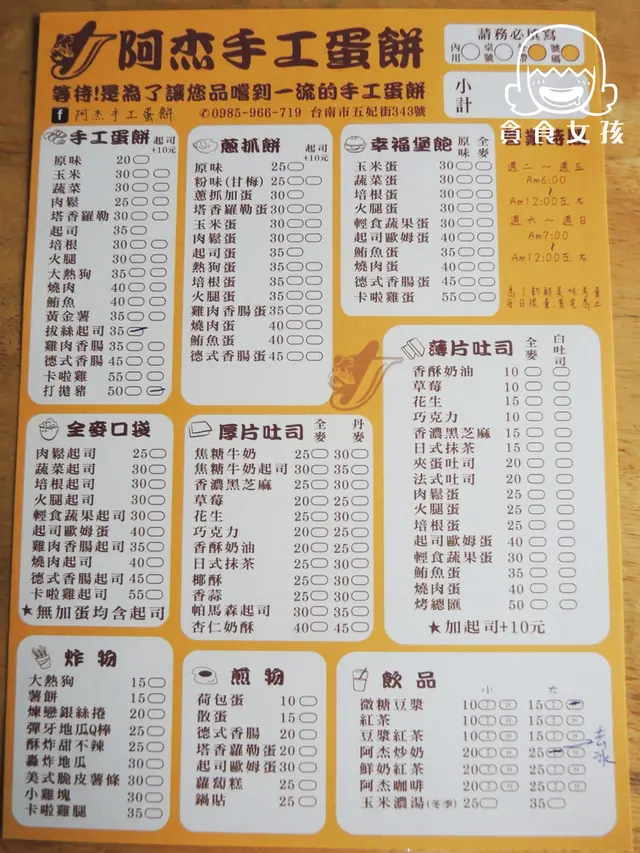 阿杰手工蛋餅
等待!是為了讓您品嚐到一流的手工蛋餅
f 阿杰手工蛋餅 ✆0985-966-719 台南市五妃街343號
請務必填寫
內用 桌號 號碼
小計
貪食女孩
手工蛋餅 起司+10元
原味 20
玉米 30
蔬菜 30
肉鬆 25
塔香羅勒 30
起司 35
培根 30
火腿 30
大熱狗 35
燒肉 40
鮪魚 40
黃金薯 35
拔絲起司 35
雞肉香腸 35
德式香腸 45
卡啦雞 55
打拋豬 50
蔥抓餅 起司+10元
原味 25
粉味(甘梅) 25
蔥抓加蛋 30
塔香羅勒蛋 30
玉米蛋 30
肉鬆蛋 30
起司蛋 35
熱狗蛋 35
培根蛋 35
火腿蛋 35
雞肉香腸蛋 35
燒肉蛋 40
鮪魚蛋 40
德式香腸蛋 45
幸福堡飽 原味 全麥
玉米蛋 30
蔬菜蛋 30
培根蛋 30
火腿蛋 30
輕食蔬果蛋 30
起司歐姆蛋 30
鮪魚蛋 35
燒肉蛋 40
德式香腸蛋 45
卡啦雞蛋 55
週二~週五
Am6:00
~
Am12:00左右
週六~週日
Am7:00
~
Am12:00左右
薄片吐司 全麥 白吐司
香酥奶油 10
草莓 10
花生 15
巧克力 10
香濃黑芝麻 15
日式抹茶 15
夾蛋吐司 20
法式吐司 20
肉鬆蛋 25
火腿蛋 25
培根蛋 25
起司歐姆蛋 30
輕食蔬果蛋 30
鮪魚蛋 35
燒肉蛋 40
烤總匯 50
★加起司+10元
全麥口袋
肉鬆起司 25
蔬菜起司 30
培根起司 30
火腿起司 30
輕食蔬果起司 30
起司歐姆蛋 30
雞肉香腸起司 35
燒肉起司 40
德式香腸起司 45
卡啦雞起司 55
★無加蛋均含起司
厚片吐司 全麥 丹麥
焦糖牛奶 25 30
焦糖牛奶起司 30 35
香濃黑芝麻 25 30
草莓 20 25
花生 25 30
巧克力 20 25
香酥奶油 20 25
日式抹茶 25 30
椰酥 25 30
香蒜 25 30
帕馬森起司 30 35
杏仁奶酥 40 45
炸物
大熱狗 15
薯餅 15
煉戀銀絲捲 20
彈牙地瓜Q棒 25
酥炸甜不辣 25
轟炸地瓜 30
美式脆皮薯條 30
小雞塊 30
卡啦雞腿 35
煎物
荷包蛋 10
散蛋 15
德式香腸 20
塔香蘿勒蛋 20
起司歐姆蛋 30
蘿蔔糕 25
鍋貼 25
飲品 小 大
微糖豆漿 10 15
紅茶 10 15
豆漿紅茶 10 15
阿杰炒奶 20 25
鮮奶紅茶 20 25
阿杰咖啡 20 25
玉米濃湯(冬季) 25 35
去冰